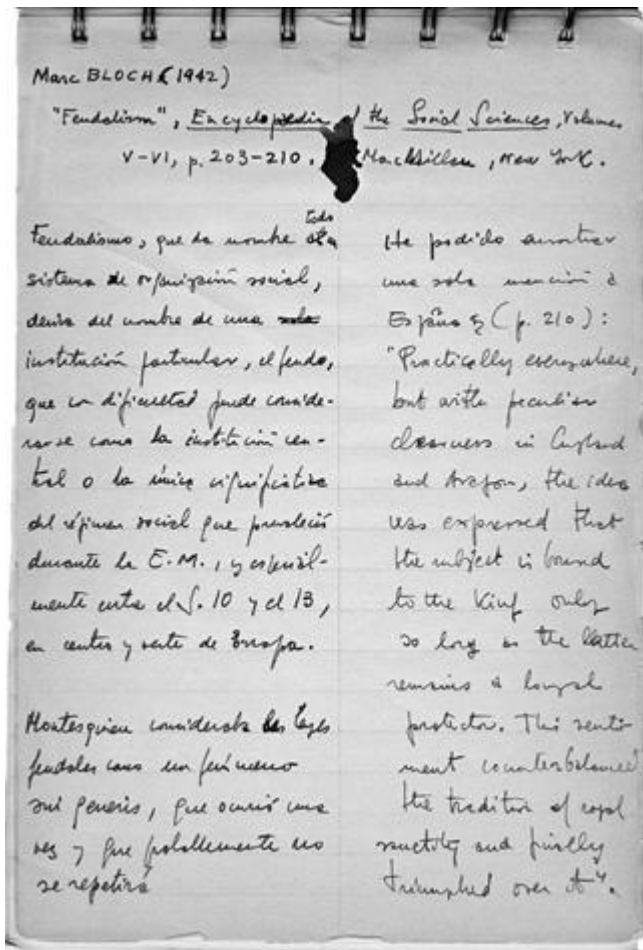 Marc BLOCH (1942)
"Feudalism", Encyclopaedia of the Social Sciences, Volumes
V-VI, p. 203-210. MacMillan, New York.
Feudalismo, que da nombre a todo
sistema de organización social,
deriva del nombre de una
institución particular, el feudo,
que con dificultad puede conside-
rarse como la institución cen-
tral o la única significativa
del régimen social que prevaleció
durante la E.M., y especial-
mente entre el S. 10 y el 13,
en centro y oeste de Europa.
Montesquieu consideraba las leyes
feudales como un fenómeno
sui generis, que ocurrió una
vez y que probablemente no
se repetirá
He podido encontrar
una sola mención a
España (p. 210):
"Practically everywhere,
but with peculiar
clearness in England
and Aragon, the idea
was expressed that
the subject is bound
to the King only
so long as the latter
remains a loyal
protector. This senti-
ment counterbalanced
the tradition of royal
sanctity and finally
triumphed over it".